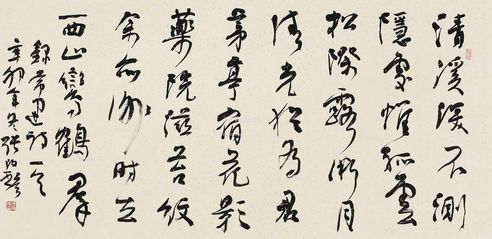 清溪深不測
隱處惟孤雲
松際露微月
清光猶為君
茅亭宿花影
藥院滋苔紋
余亦謝時去
西山鸞鶴群
錄常建詩一首
辛卯年冬張改琴